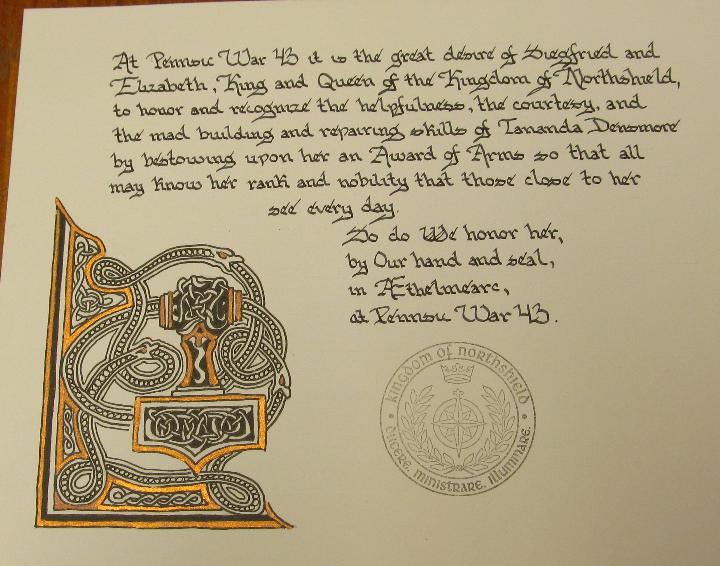 At Pennsic War 43 it is the great desire of Siegfried and
Elizabeth, King and Queen of the Kingdom of Northshield,
to honor and recognize the helpfulness, the courtesy, and
the mad building and repairing skills of Tananda Densmore
by bestowing upon her an Award of Arms so that all
may know her rank and nobility that those close to her
see every day.
So do We honor her,
by Our hand and seal,
in Æthelmearc,
at Pennsic War 43.
kingdom of Northshield
Ducere. Ministrare. Illuminare.